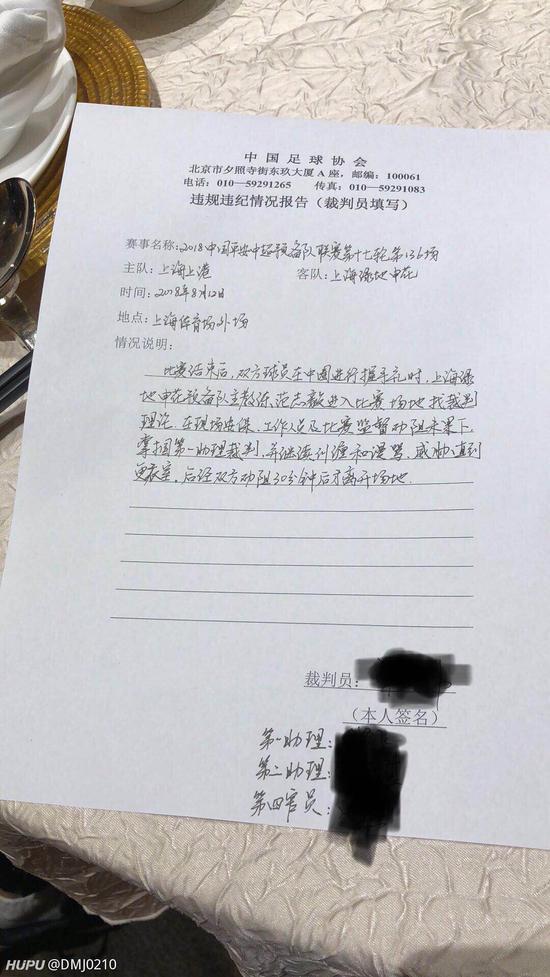 中国足球协会
北京市夕照寺街东玖大厦 A 座，邮编：100061
电话：010—59291265 传真：010—59291083
违规违纪情况报告（裁判员填写）
赛事名称：2018中国平安中超预备队联赛第十七轮第136场
主队：上海上港 客队：上海绿地申花
时间：2018年8月12日
地点：上海体育场外场
情况说明：
比赛结束后，双方球员在中圈进行握手礼时，上海绿
地申花预备队主教练范志毅进入比赛场地找裁判
理论，在现场安保、工作人员及比赛监督劝阻未果下，
掌掴第一助理裁判，并继续纠缠和谩骂，威胁直到
更衣室，后经双方劝阻30分钟后才离开场地
裁判员：
（本人签名）
第一助理：
第二助理：
第四官员：
HUPU @DMJ0210